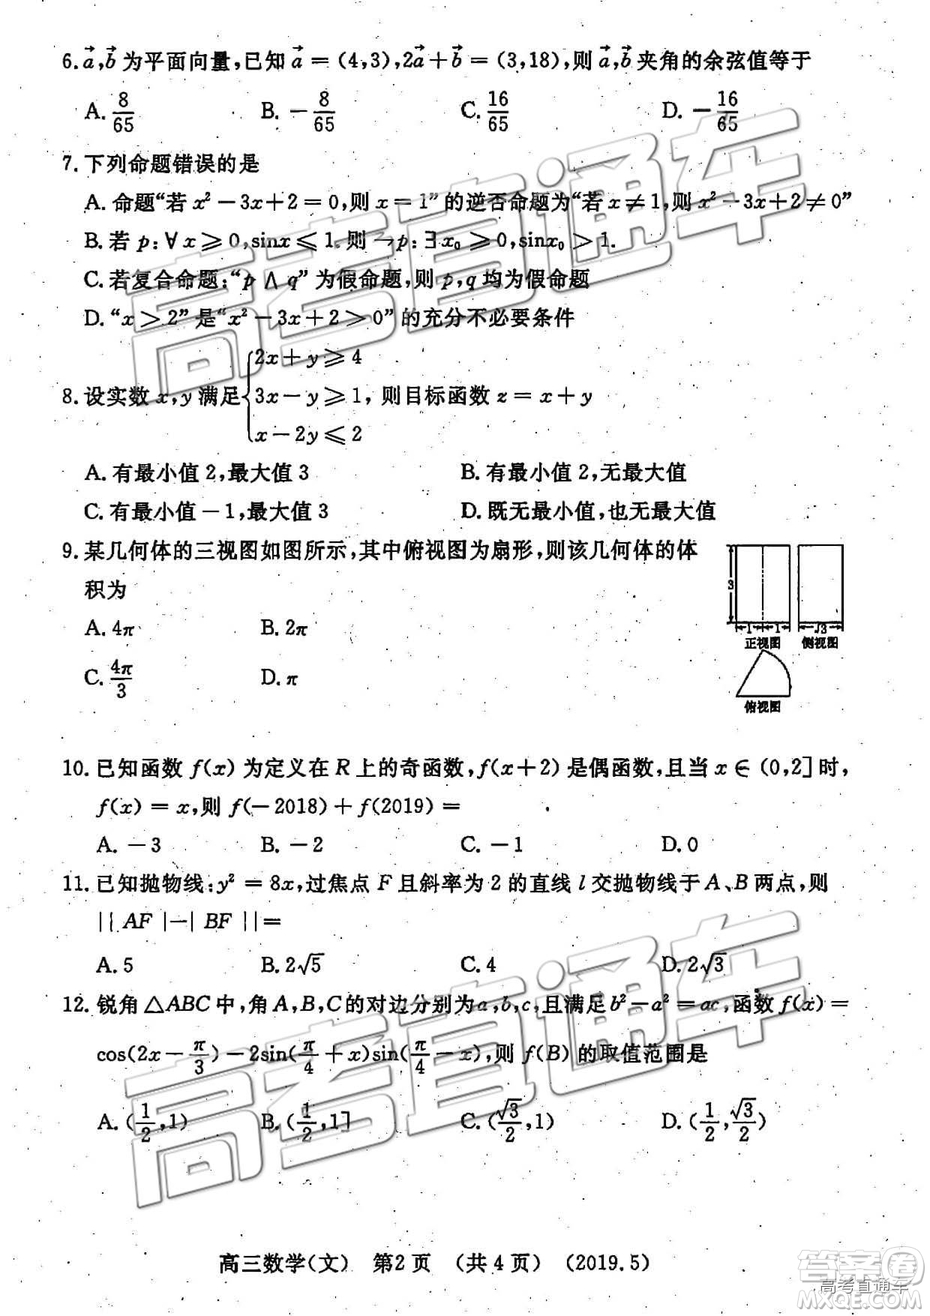 6. a⃗,b⃗ 为平面向量,已知 a⃗=(4,3),2a⃗+b⃗=(3,18),则 a⃗,b⃗ 夹角的余弦值等于
A. 8/65 B. −8/65 C. 16/65 D. −16/65
7. 下列命题错误的是
A. 命题“若 x²−3x+2=0,则 x=1”的逆否命题为“若 x≠1,则 x²−3x+2≠0”
B. 若 p:∀x⩾0,sinx⩽1.则¬p:∃x₀⩾0,sinx₀>1.
C. 若复合命题:“p∧q”为假命题,则 p,q 均为假命题
D. “x>2”是“x²−3x+2>0”的充分不必要条件
8. 设实数 x,y 满足{2x+y⩾4
3x−y⩾1, 则目标函数 z=x+y
x−2y⩽2
A. 有最小值 2,最大值 3 B. 有最小值 2,无最大值
C. 有最小值−1,最大值 3 D. 既无最小值,也无最大值
9. 某几何体的三视图如图所示,其中俯视图为扇形,则该几何体的体
积为
A. 4π B. 2π
C. 4π/3 D. π
3
1 1 √3
正视图 侧视图
俯视图
10. 已知函数 f(x) 为定义在 R 上的奇函数,f(x+2) 是偶函数,且当 x∈(0,2] 时,
f(x)=x,则 f(−2018)+f(2019)=
A. −3 B. −2 C. −1 D. 0
11. 已知抛物线:y²=8x,过焦点 F 且斜率为 2 的直线 l 交抛物线于 A、B 两点,则
||AF|−|BF||=
A. 5 B. 2√5 C. 4 D. 2√3
12. 锐角△ABC 中,角 A,B,C 的对边分别为 a,b,c,且满足 b²−a²=ac,函数 f(x)=
cos(2x−π/3)−2sin(π/4+x)sin(π/4−x),则 f(B) 的取值范围是
A. (1/2,1) B. (1/2,1] C. (√3/2,1) D. (1/2,√3/2)
高三数学(文) 第2页 (共4页) (2019.5)
高考直通车
高考直通车
答案圈
高考直通车
MXQE.COM